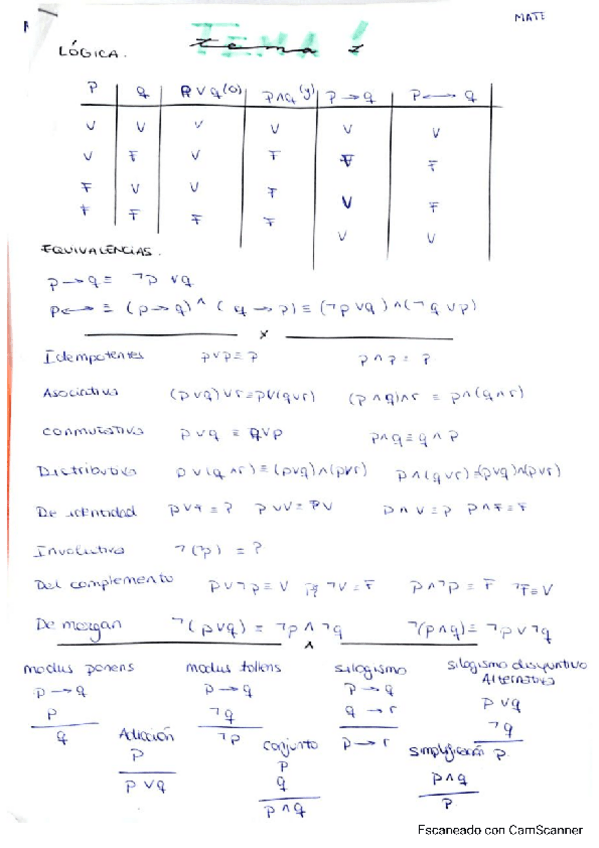 MATE
LÓGICA. Tema 1
P q P∨q (o) p∧q (y) p→q p⟷q
V V V V V V
V F V F F F
F V V F V F
F F F F V V
EQUIVALENCIAS.
p→q≡ ¬p∨q
p⟷ ≡ (p→q)^(q→p)≡(¬p∨q)∧(¬q∨p)
x
Idempotentes p∨p≡p p∧p≡p
Asociativa (p∨q)∨r≡p∨(q∨r) (p∧q)∧r ≡ p∧(q∧r)
Conmutativa p∨q ≡ q∨p p∧q≡q∧p
Distributiva p∨(q∧r)≡(p∨q)∧(p∨r) p∧(q∨r)≡(p∨q)∧(p∨r)
De identidad p∧V≡p p∧F≡F
Involutiva ¬(p) = ?
Del complemento p∨¬p≡V ¬V≡F p∧¬p≡F ¬F≡V
De morgan ¬(p∨q) ≡ ¬p∧¬q ¬(p∧q)≡ ¬p∨¬q
modus ponens modus tollens silogismo silogismo disyuntivo
Alternativa
p→q p→q p→q p∨q
p ¬q q→r ¬q
q ¬p p→r p
Adicción conjunto simplificación
p p p∧q
p∨q q p
p∧q
Escaneado con CamScanner